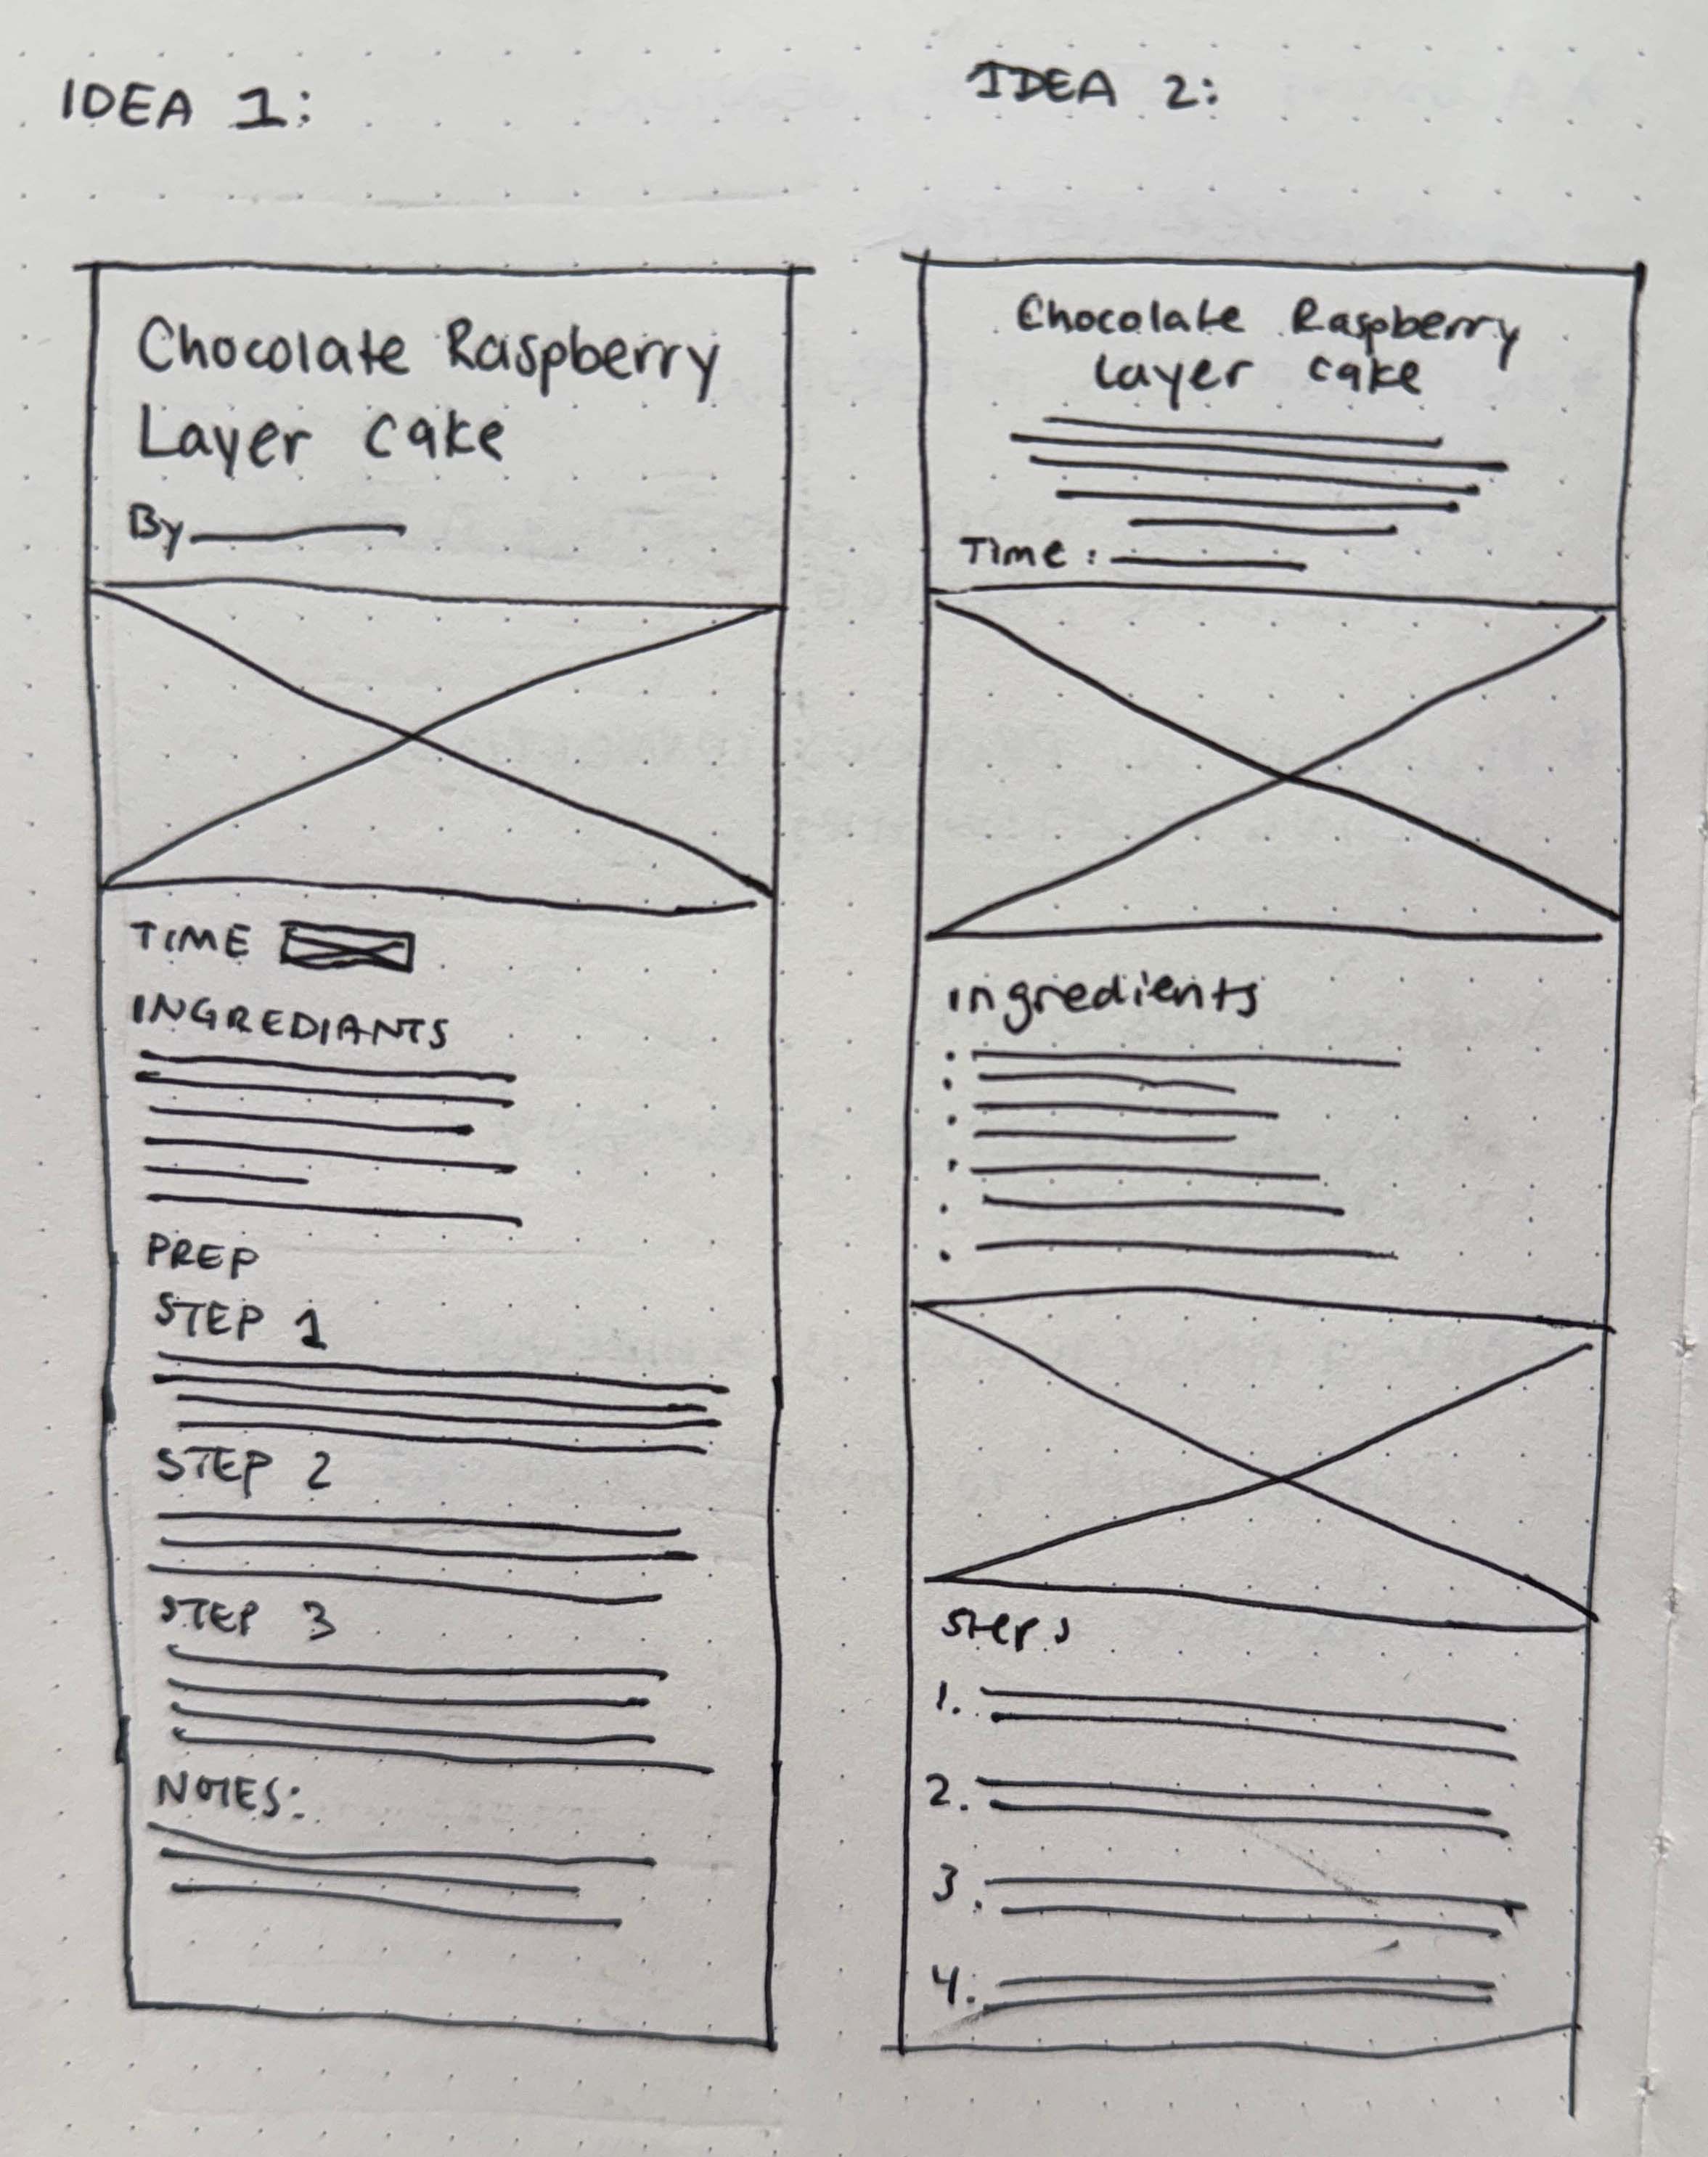 IDEA 1:
Chocolate Raspberry
Layer cake
By
TIME
INGREDIANTS
PREP
STEP 1
STEP 2
STEP 3
NOTES:
IDEA 2:
Chocolate Raspberry
Layer cake
Time:
ingredients
steps
1.
2.
3.
4.